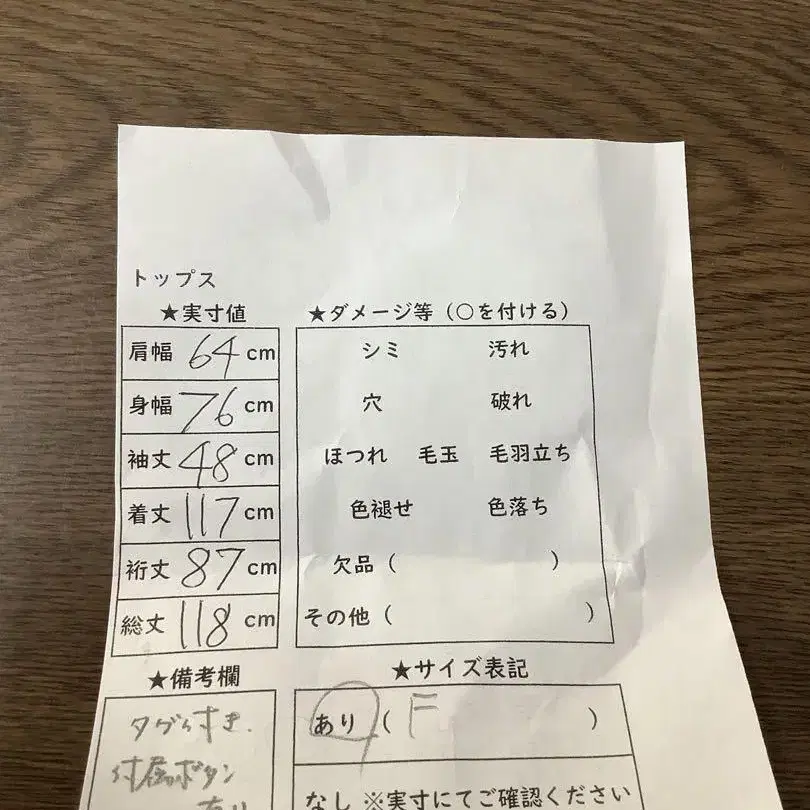 トップス
★実寸値
肩幅 64 cm
身幅 76 cm
袖丈 48 cm
着丈 117 cm
裄丈 87 cm
総丈 118 cm
★ダメージ等（○を付ける）
シミ 汚れ
穴 破れ
ほつれ 毛玉 毛羽立ち
色褪せ 色落ち
欠品（ ）
その他（ ）
★備考欄
タグ付き.
付属ボタン
あり
★サイズ表記
あり（ F ）
なし ※実寸にてご確認ください